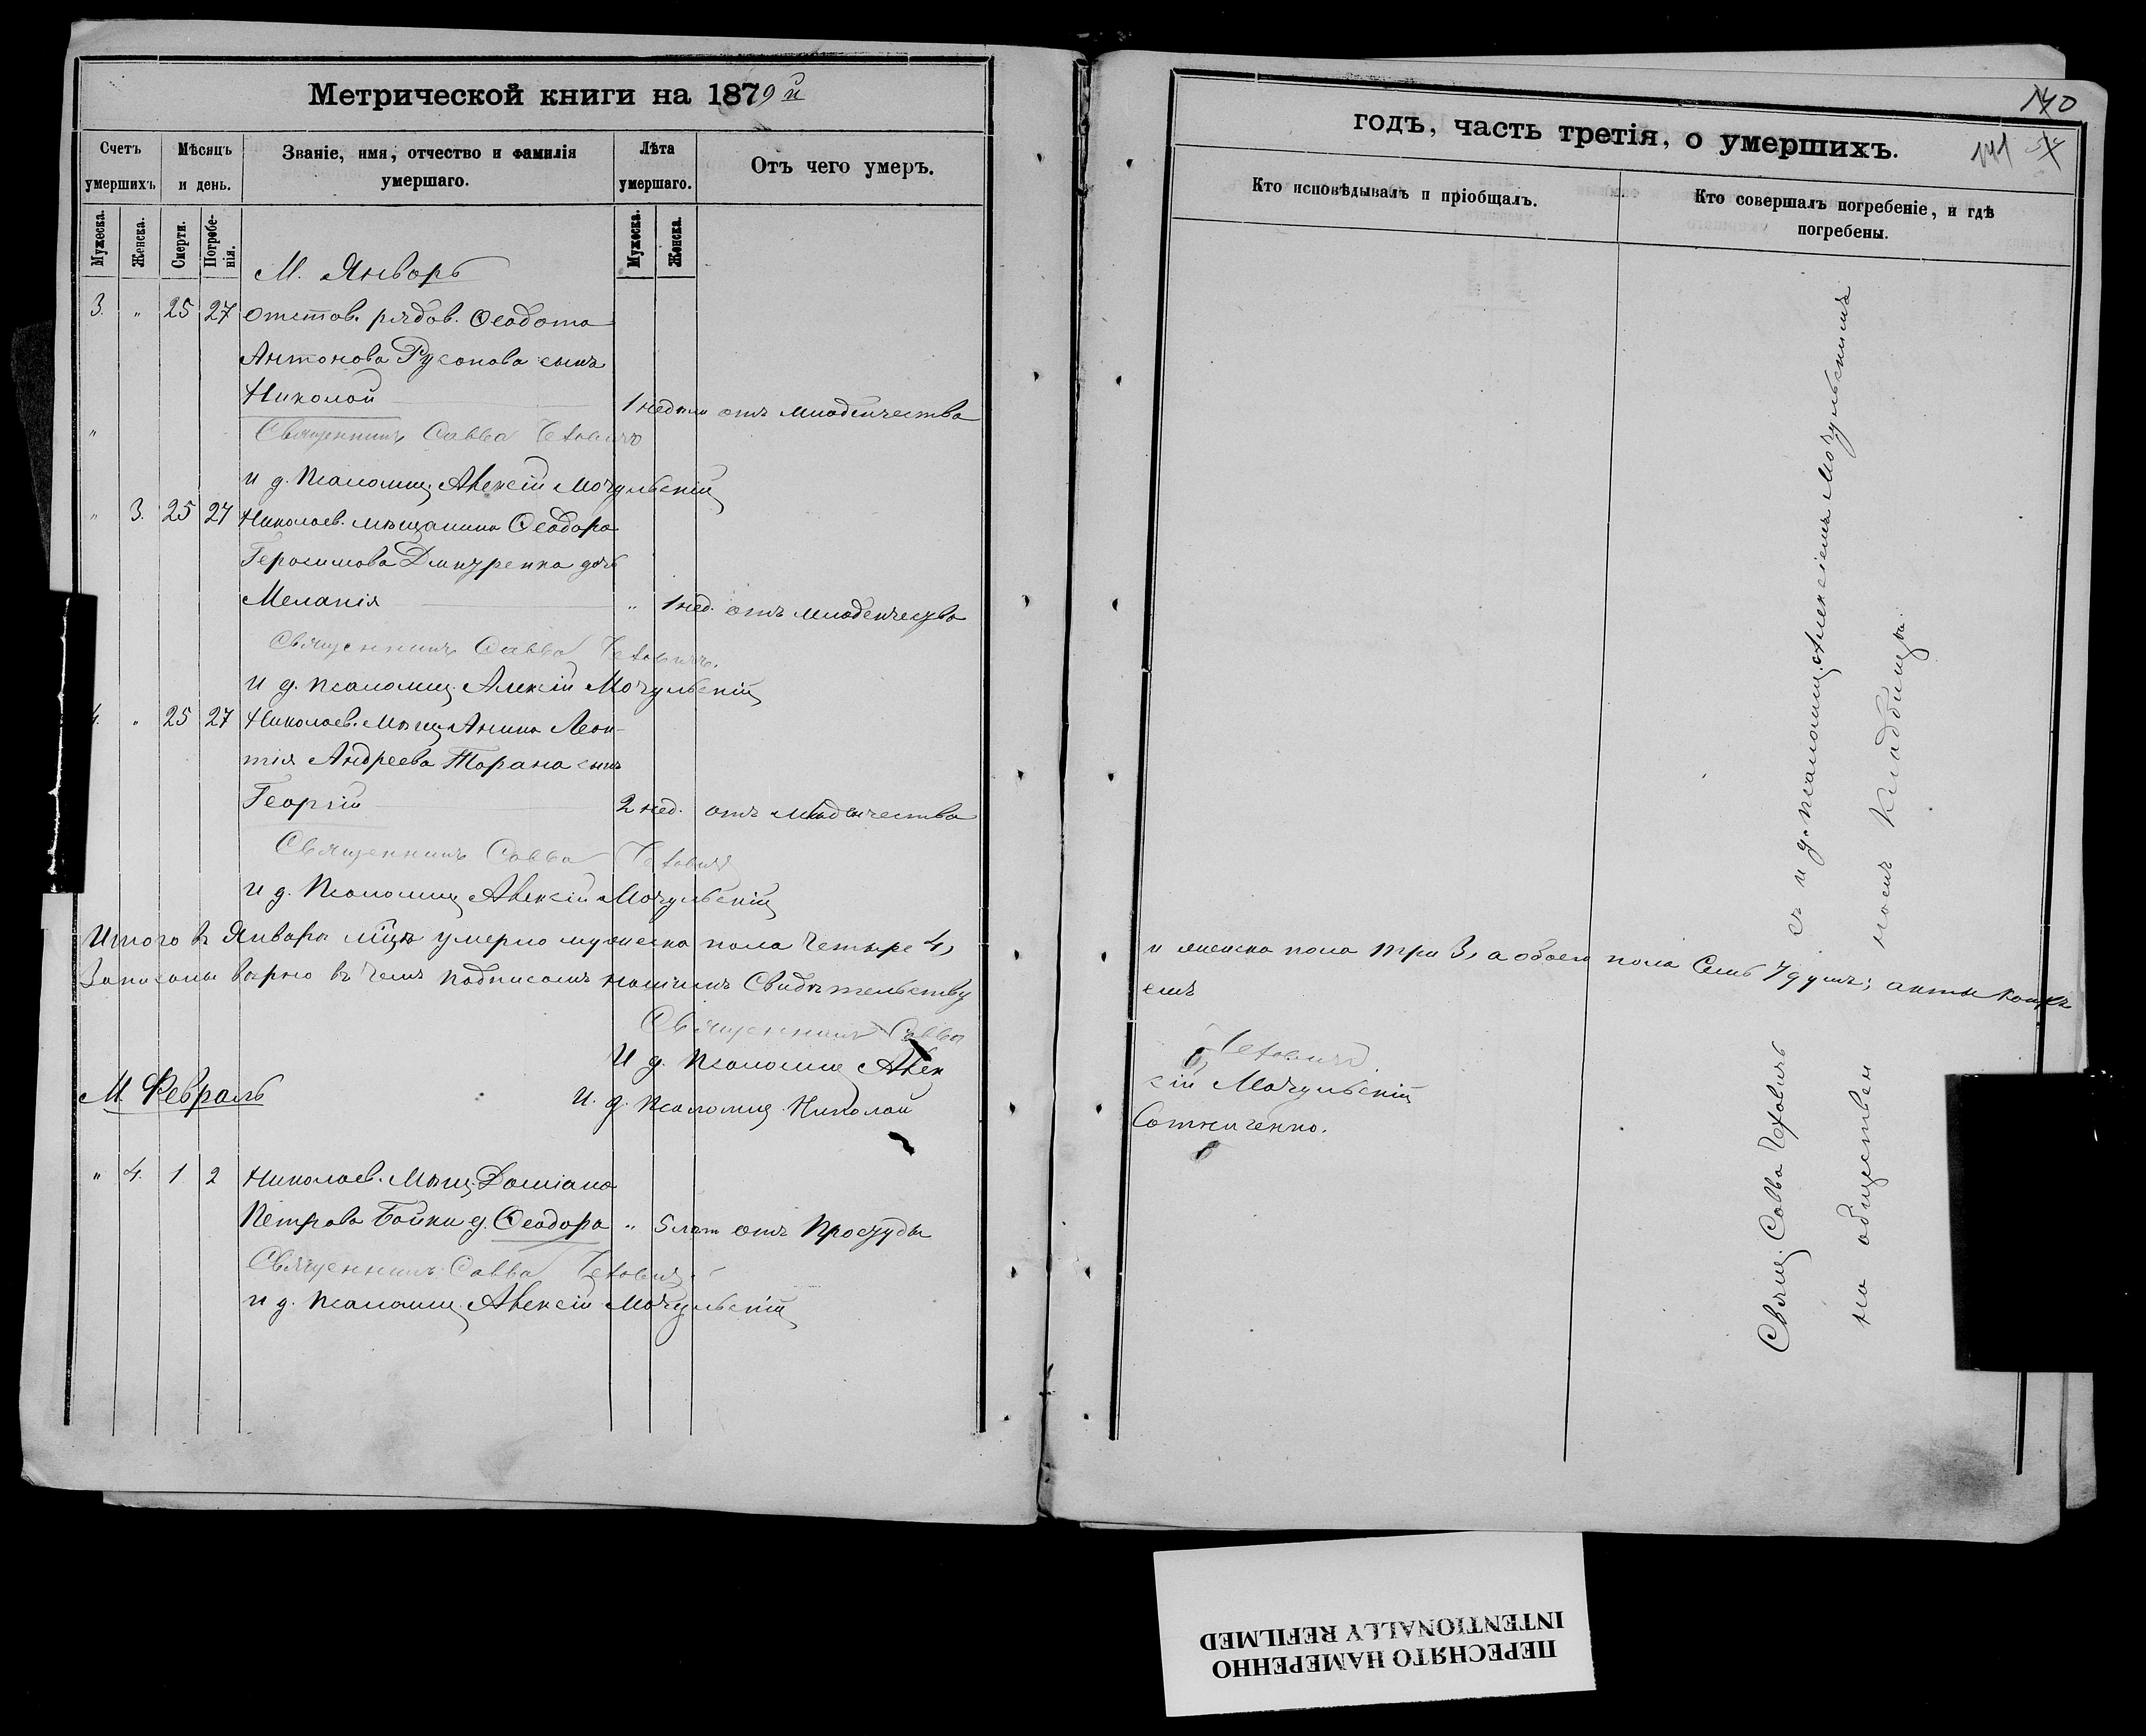 Метрической книги на 1879 й
Счетъ умершихъ
Мѣсяцъ и день.
Званіе, имя, отчество и фамилія умершаго.
Лѣта умершаго.
Отъ чего умеръ.
Мужеска.
Женска.
Смерти.
Погребенія.
Мужеска.
Женска.
М. Январь
3. " 25 27 Отстав. рядов. Ѳеодота
Антонова Русонова сынъ
Николай 1 недѣли отъ младенчества
"
Священникъ Савва Чеховичъ
и д. Псаломщ. Алексій Мочульскій
" 3. 25 27 Николаев. мѣщанина Ѳеодора
Герасимова Дмитренка дочь
Меланія " 1 нед. отъ младенчества
Священникъ Савва Чеховичъ.
И д. псаломщ. Алексій Мочульскій
4. " 25 27 Николаев. Мѣщанина Леон-
тія Андреева Тарана сынъ
Георгій 2 нед. отъ младенчества
Священникъ Савва Чеховичъ
И д. Псаломщ Алексій Мочульскій
Итого въ Январѣ мцѣ умерло мужеска пола Четыре 4,
Записаны вѣрно въ чемъ подписомъ нашимъ Свидѣтельству
Священникъ Савва
И д. Псаломщ Алек
И. д. Псаломщ. Николай
М. Февраль
" 4. 1 2 Николаев. Мѣщ. Даміана
Петрова Бойки д. Ѳеодора " 5 лѣт отъ Простуды
Священникъ Савва Чеховичъ.
и д. Псаломщ. Алексій Мочульскій
140
годъ, часть третія, о умершихъ.
141
Кто исповѣдывалъ и пріобщалъ.
Кто совершалъ погребеніе, и гдѣ погребены.
и женска пола три 3, а обоего пола Семь 7 душъ; акты коихъ
емъ
Чеховичъ
сій Мочульскій
Сотниченко.
Свящ. Савва Чеховичъ съ и д. псаломщ. Алексіемъ Мочульскимъ
на обществен номъ Кладбищѣ.
ПЕРЕСНЯТО НАМЕРЕННО
INTENTIONALLY REFILMED